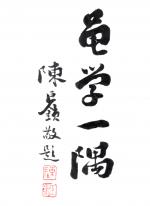 学一隅
陳嶺敬題